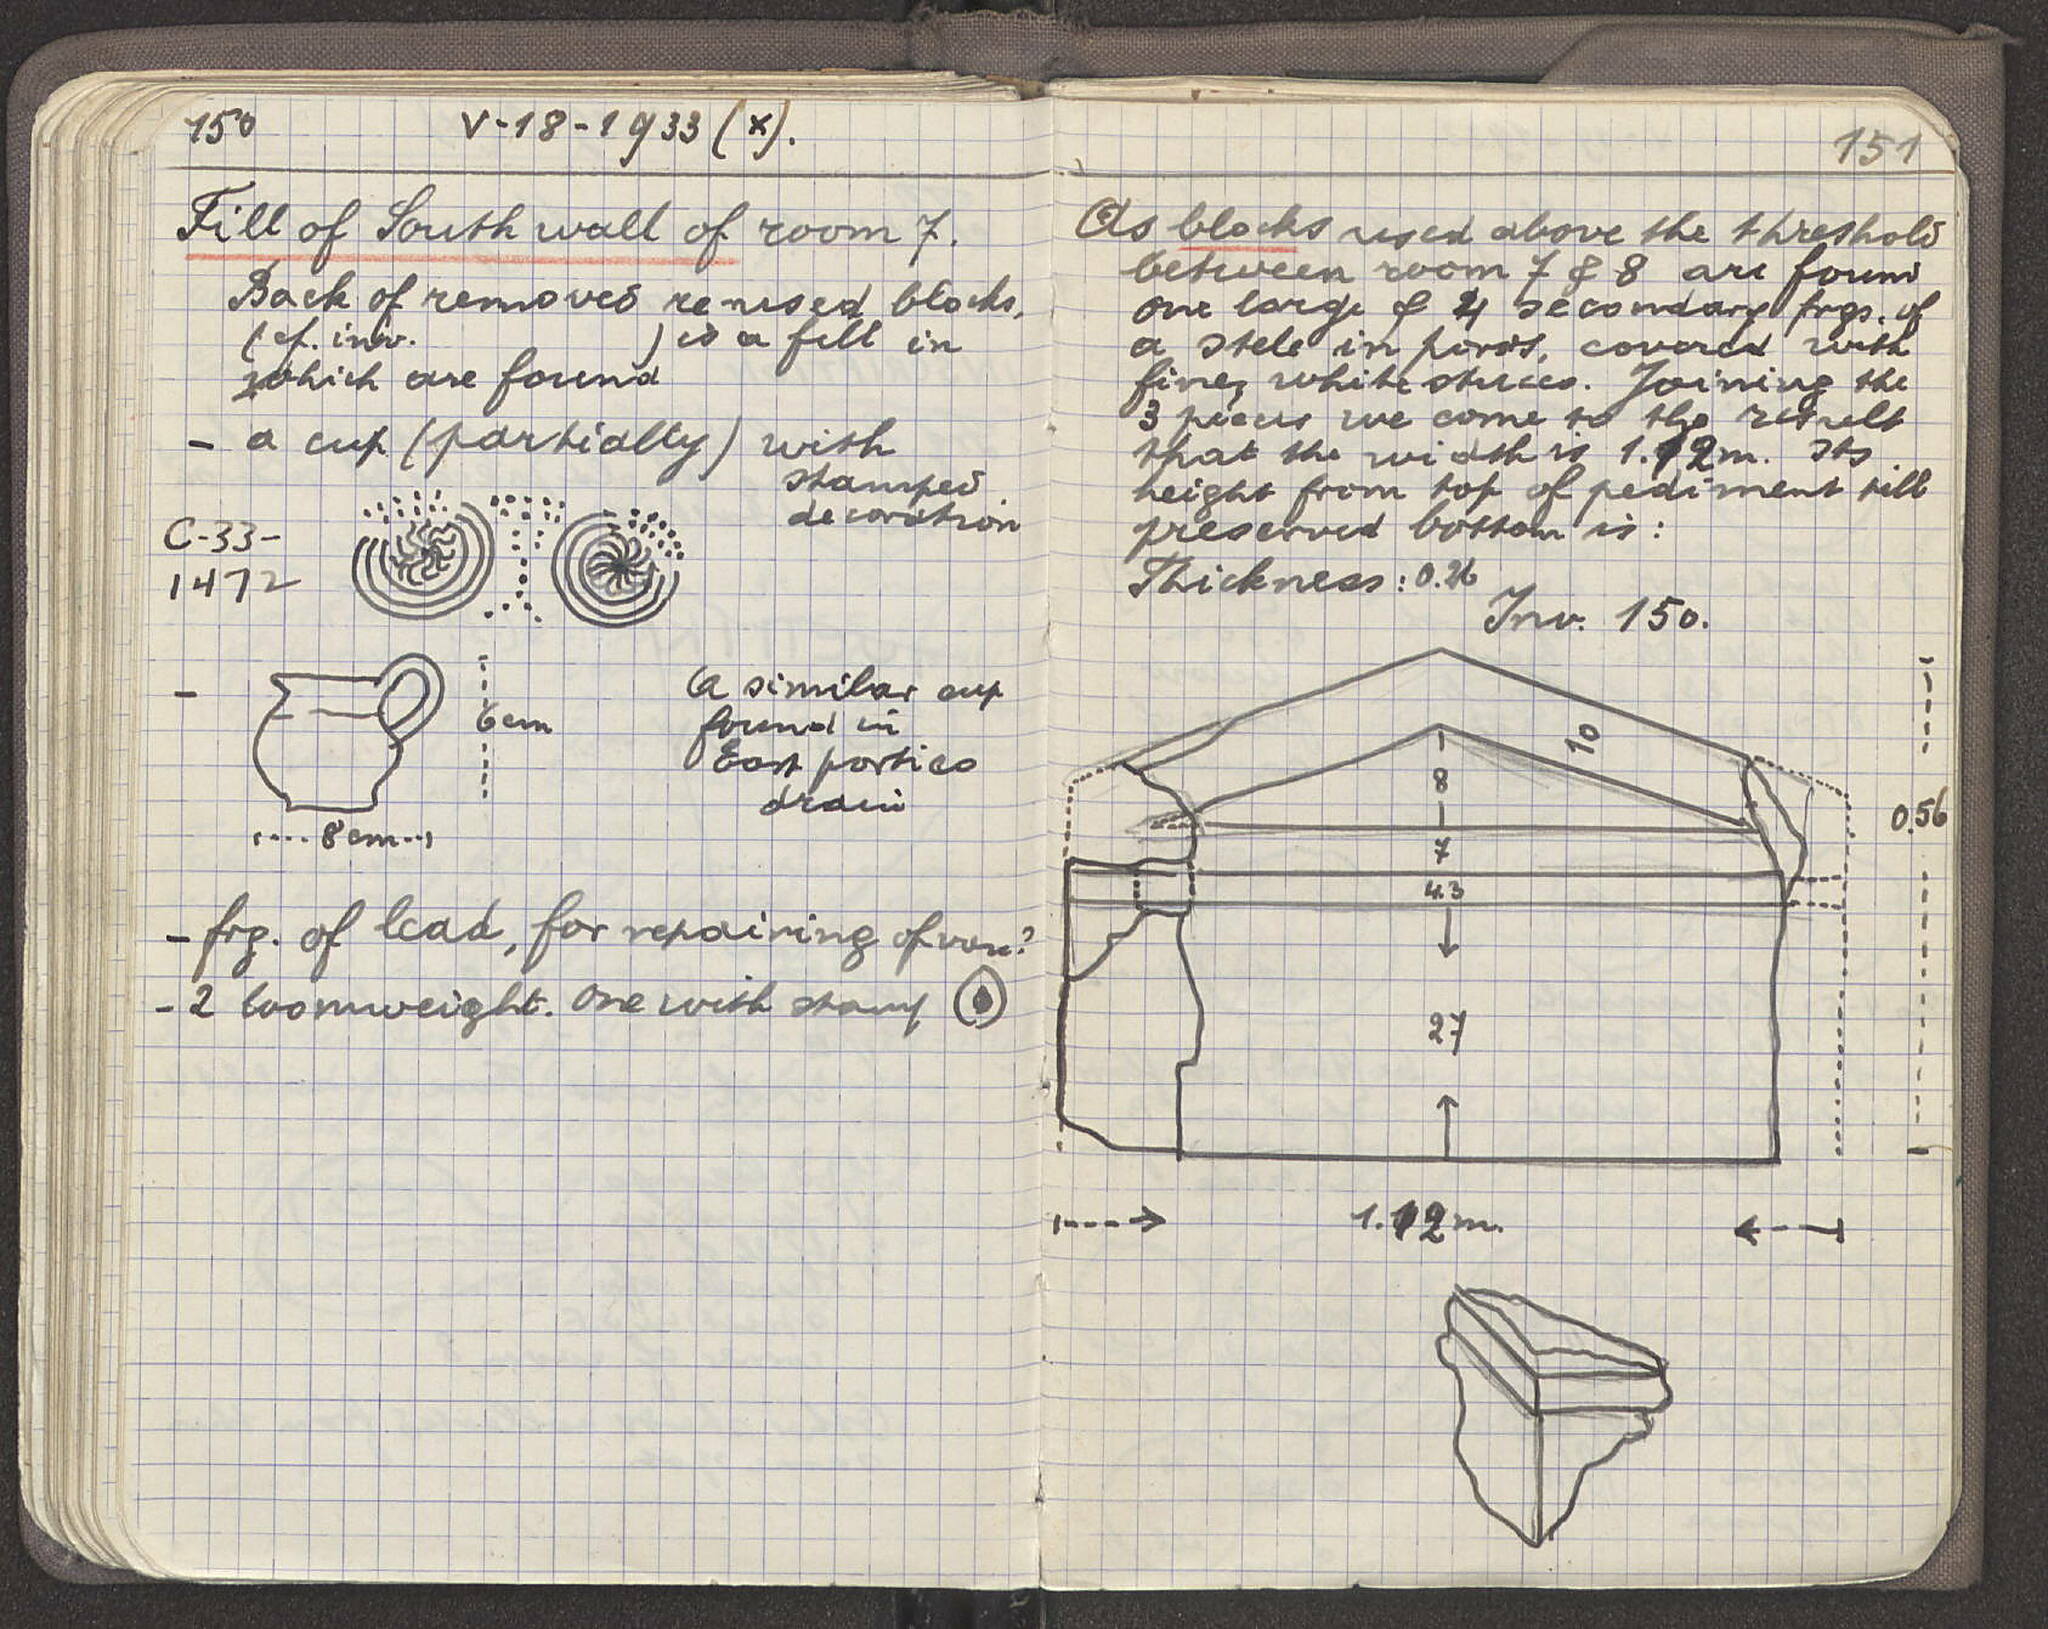 150 V-18-1933 (x).
Fill of South wall of room 7.
Back of removed reused blocks,
(cf. inv. ) is a fill in
which are found
- a cup (partially) with
stamped
decoration
C-33-
1472
-
6 cm
8 cm
a similar cup
found in
East portico
drain
- frg. of lead, for repairing of vase?
- 2 loomweight. One with stamp
151
As blocks used above the threshold
between room 7 & 8 are found
one large & 4 secondary frgs. of
a stele in poros, covered with
fine, white stucco. Joining the
3 pieces we come to the result
that the width is 1.12m. Its
height from top of pediment till
preserved bottom is:
Thickness: 0.26
Inv. 150.
10
8
7
4.3
27
0.56
1.12 m.